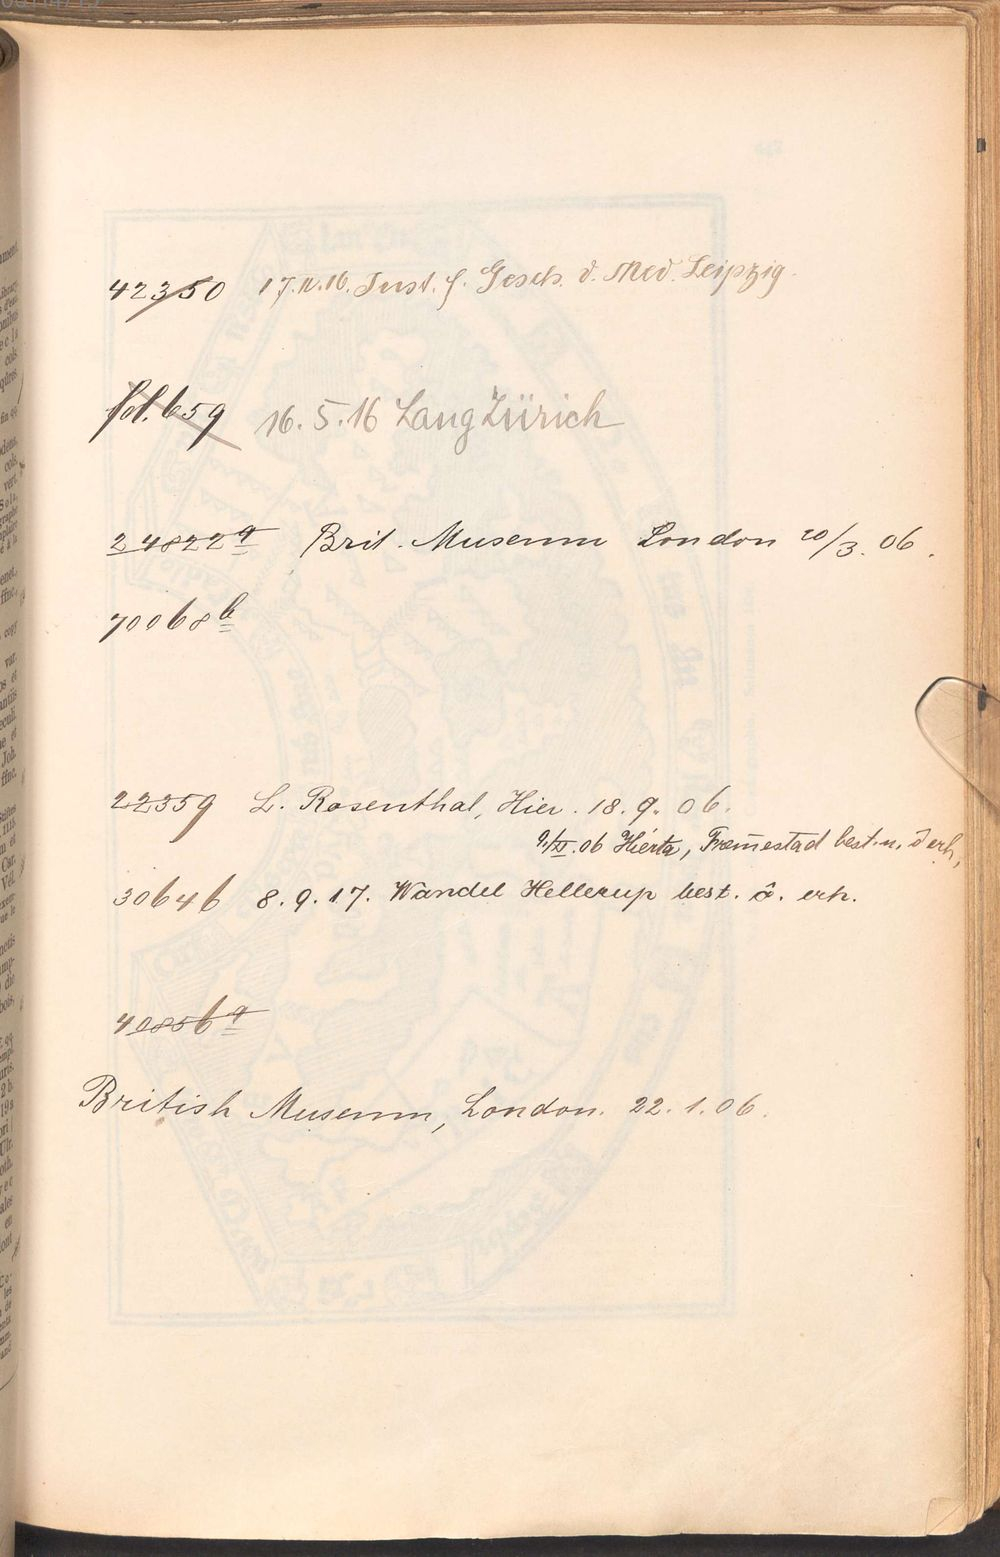 42350 17.IV.16. Inst. f. Gesch. d. Med. Leipzig.
fol. 659 16.5.16 Lang Zürich
24822a Brit. Museum London 20/3. 06.
70068b
22359 L. Rosenthal, Hier. 18.9.06.
9/XI.06 Hierta, Främestad best. u. d erh,
30646 8.9.17. Wandel Hellerup best. o. erh.
40856a
British Museum, London. 22.1.06.